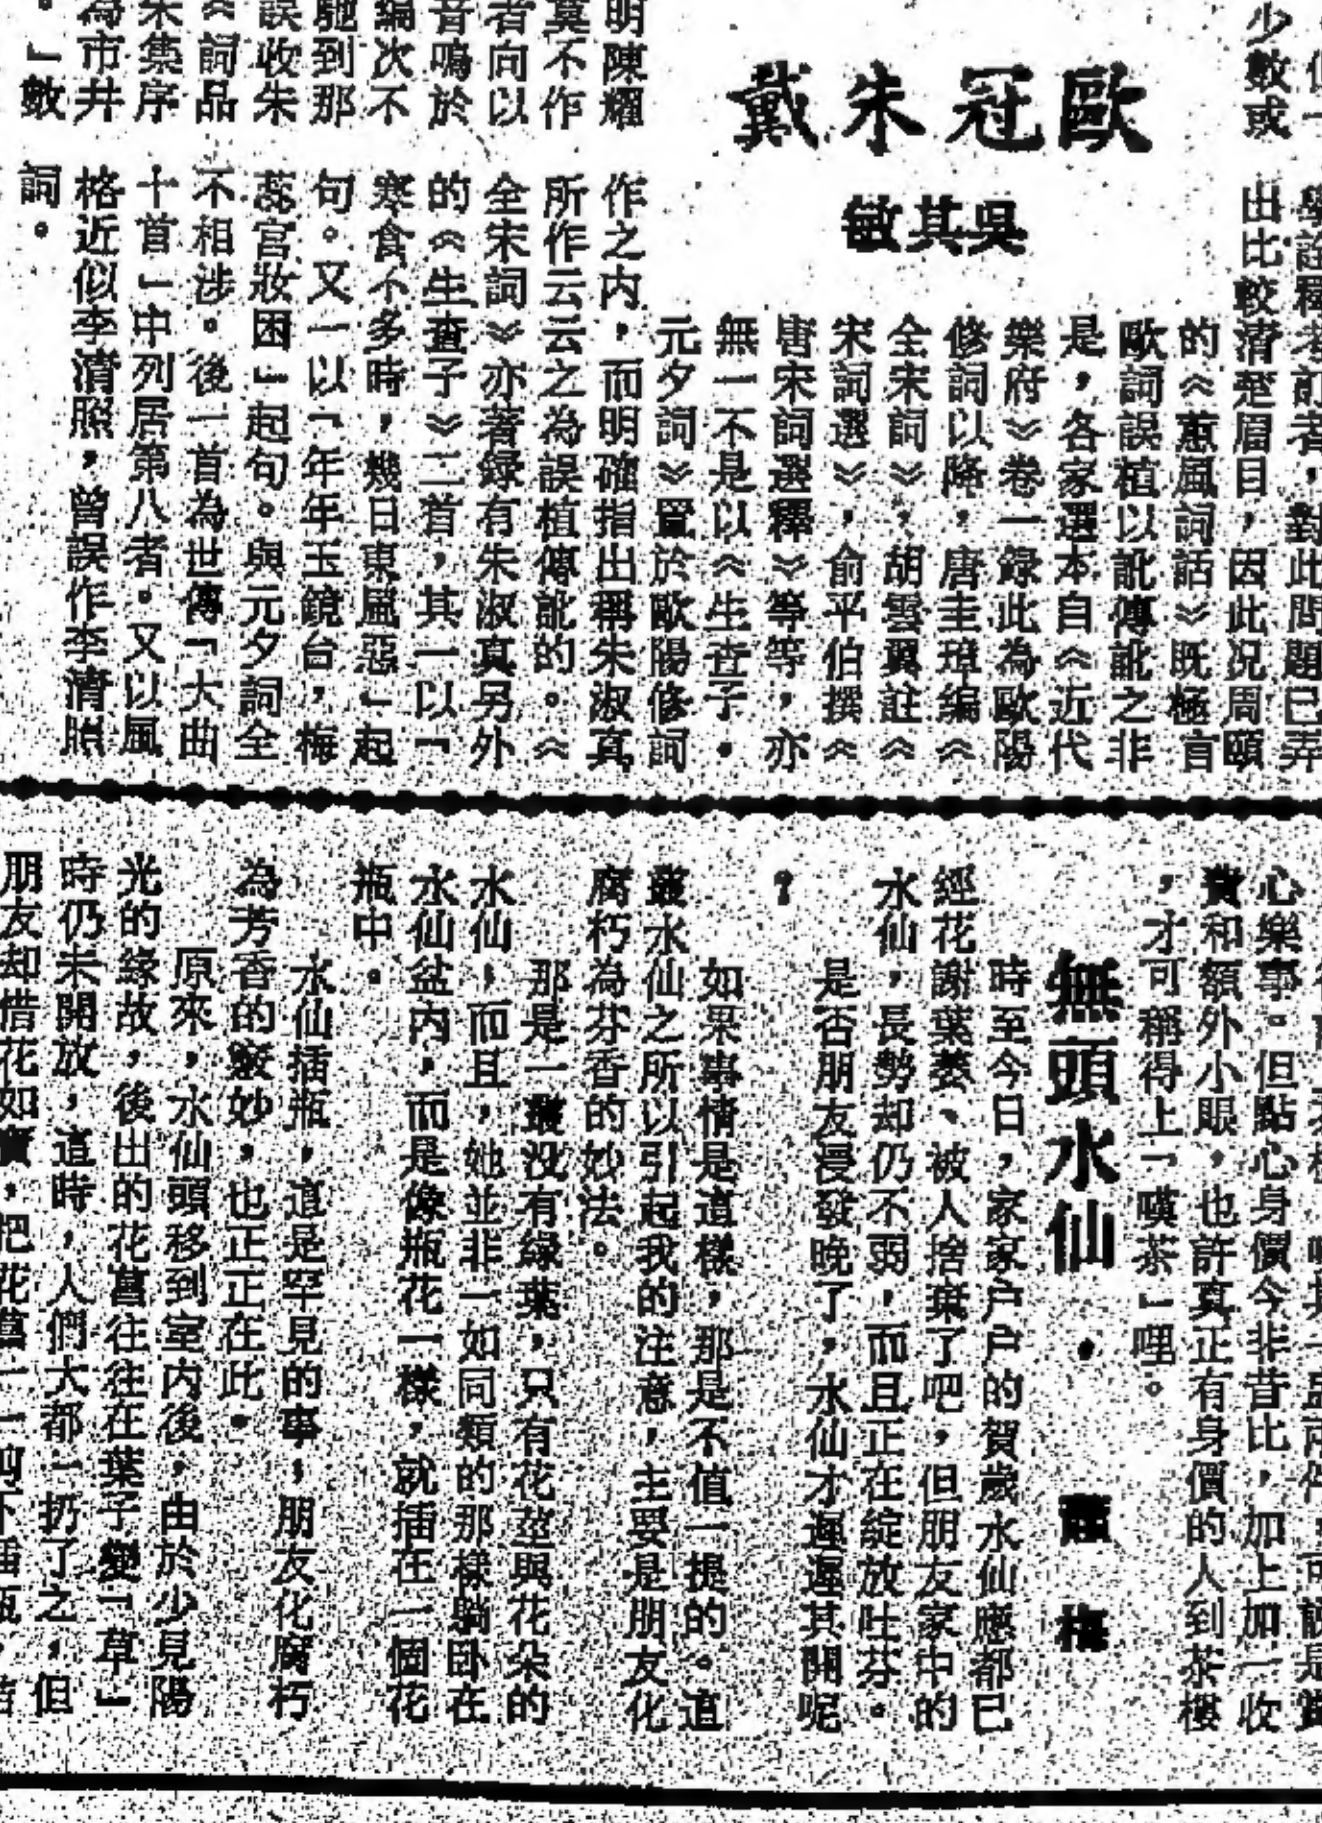 但一
少數或
歐冠朱戴
吳其敏
明陳耀
莫不作
者向以
音鳴於
編次不
馳到那
誤收朱
《詞品
朱集序
為市井
。」數
對此問題已弄
出比較清楚眉目,因此况周頤
的《蕙風詞話》既極言
歐詞誤植以訛傳訛之非
是,各家選本自《近代
樂府》卷一錄此為歐陽
修詞以降,唐圭璋編《
全宋詞》,胡雲翼註《
宋詞選》,俞平伯撰《
唐宋詞選釋》等等,亦
無一不是以《生查子·
元夕詞》置於歐陽修詞
作之内,而明確指出稱朱淑真
所作云云之為誤植傳訛的。《
全宋詞》亦著録有朱淑真另外
的《生查子》二首,其一以「
寒食不多時,幾日東風惡」起
句。又一以「年年玉鏡台,梅
蕊宮妝困」起句。與元夕詞全
不相涉。後一首為世傳「大曲
十首」中列居第八者。又以風
格近似李清照,曾誤作李清照
詞。
心樂事。但點心身價今非昔比,加上加一收
費和額外小眼,也許真正有身價的人到茶樓
,才可稱得上「嘆茶」哩。
無頭水仙·梅
時至今日,家家户户的賀歲水仙應都已
經花謝葉萎、被人捨棄了吧,但朋友家中的
水仙,長勢却仍不弱,而且正在綻放吐芬。
是否朋友漫發晚了,水仙才遲遲其開呢
?
如果事情是這樣,那是不值一提的。這
叢水仙之所以引起我的注意,主要是朋友化
腐朽為芬香的妙法。
那是一叢没有綠葉,只有花莖與花朵的
水仙,而且,她並非一如同類的那樣躺卧在
水仙盆内,而是像瓶花一樣,就插在一個花
瓶中。
水仙插瓶,這是罕見的事,朋友化腐朽
為芳香的竅妙,也正正在此。
原來,水仙頭移到室内後,由於少見陽
光的緣故,後出的花菖往往在葉子變「草」
時仍未開放,這時,人們大都一扔了之,但
朋友却惜花如寶,把花